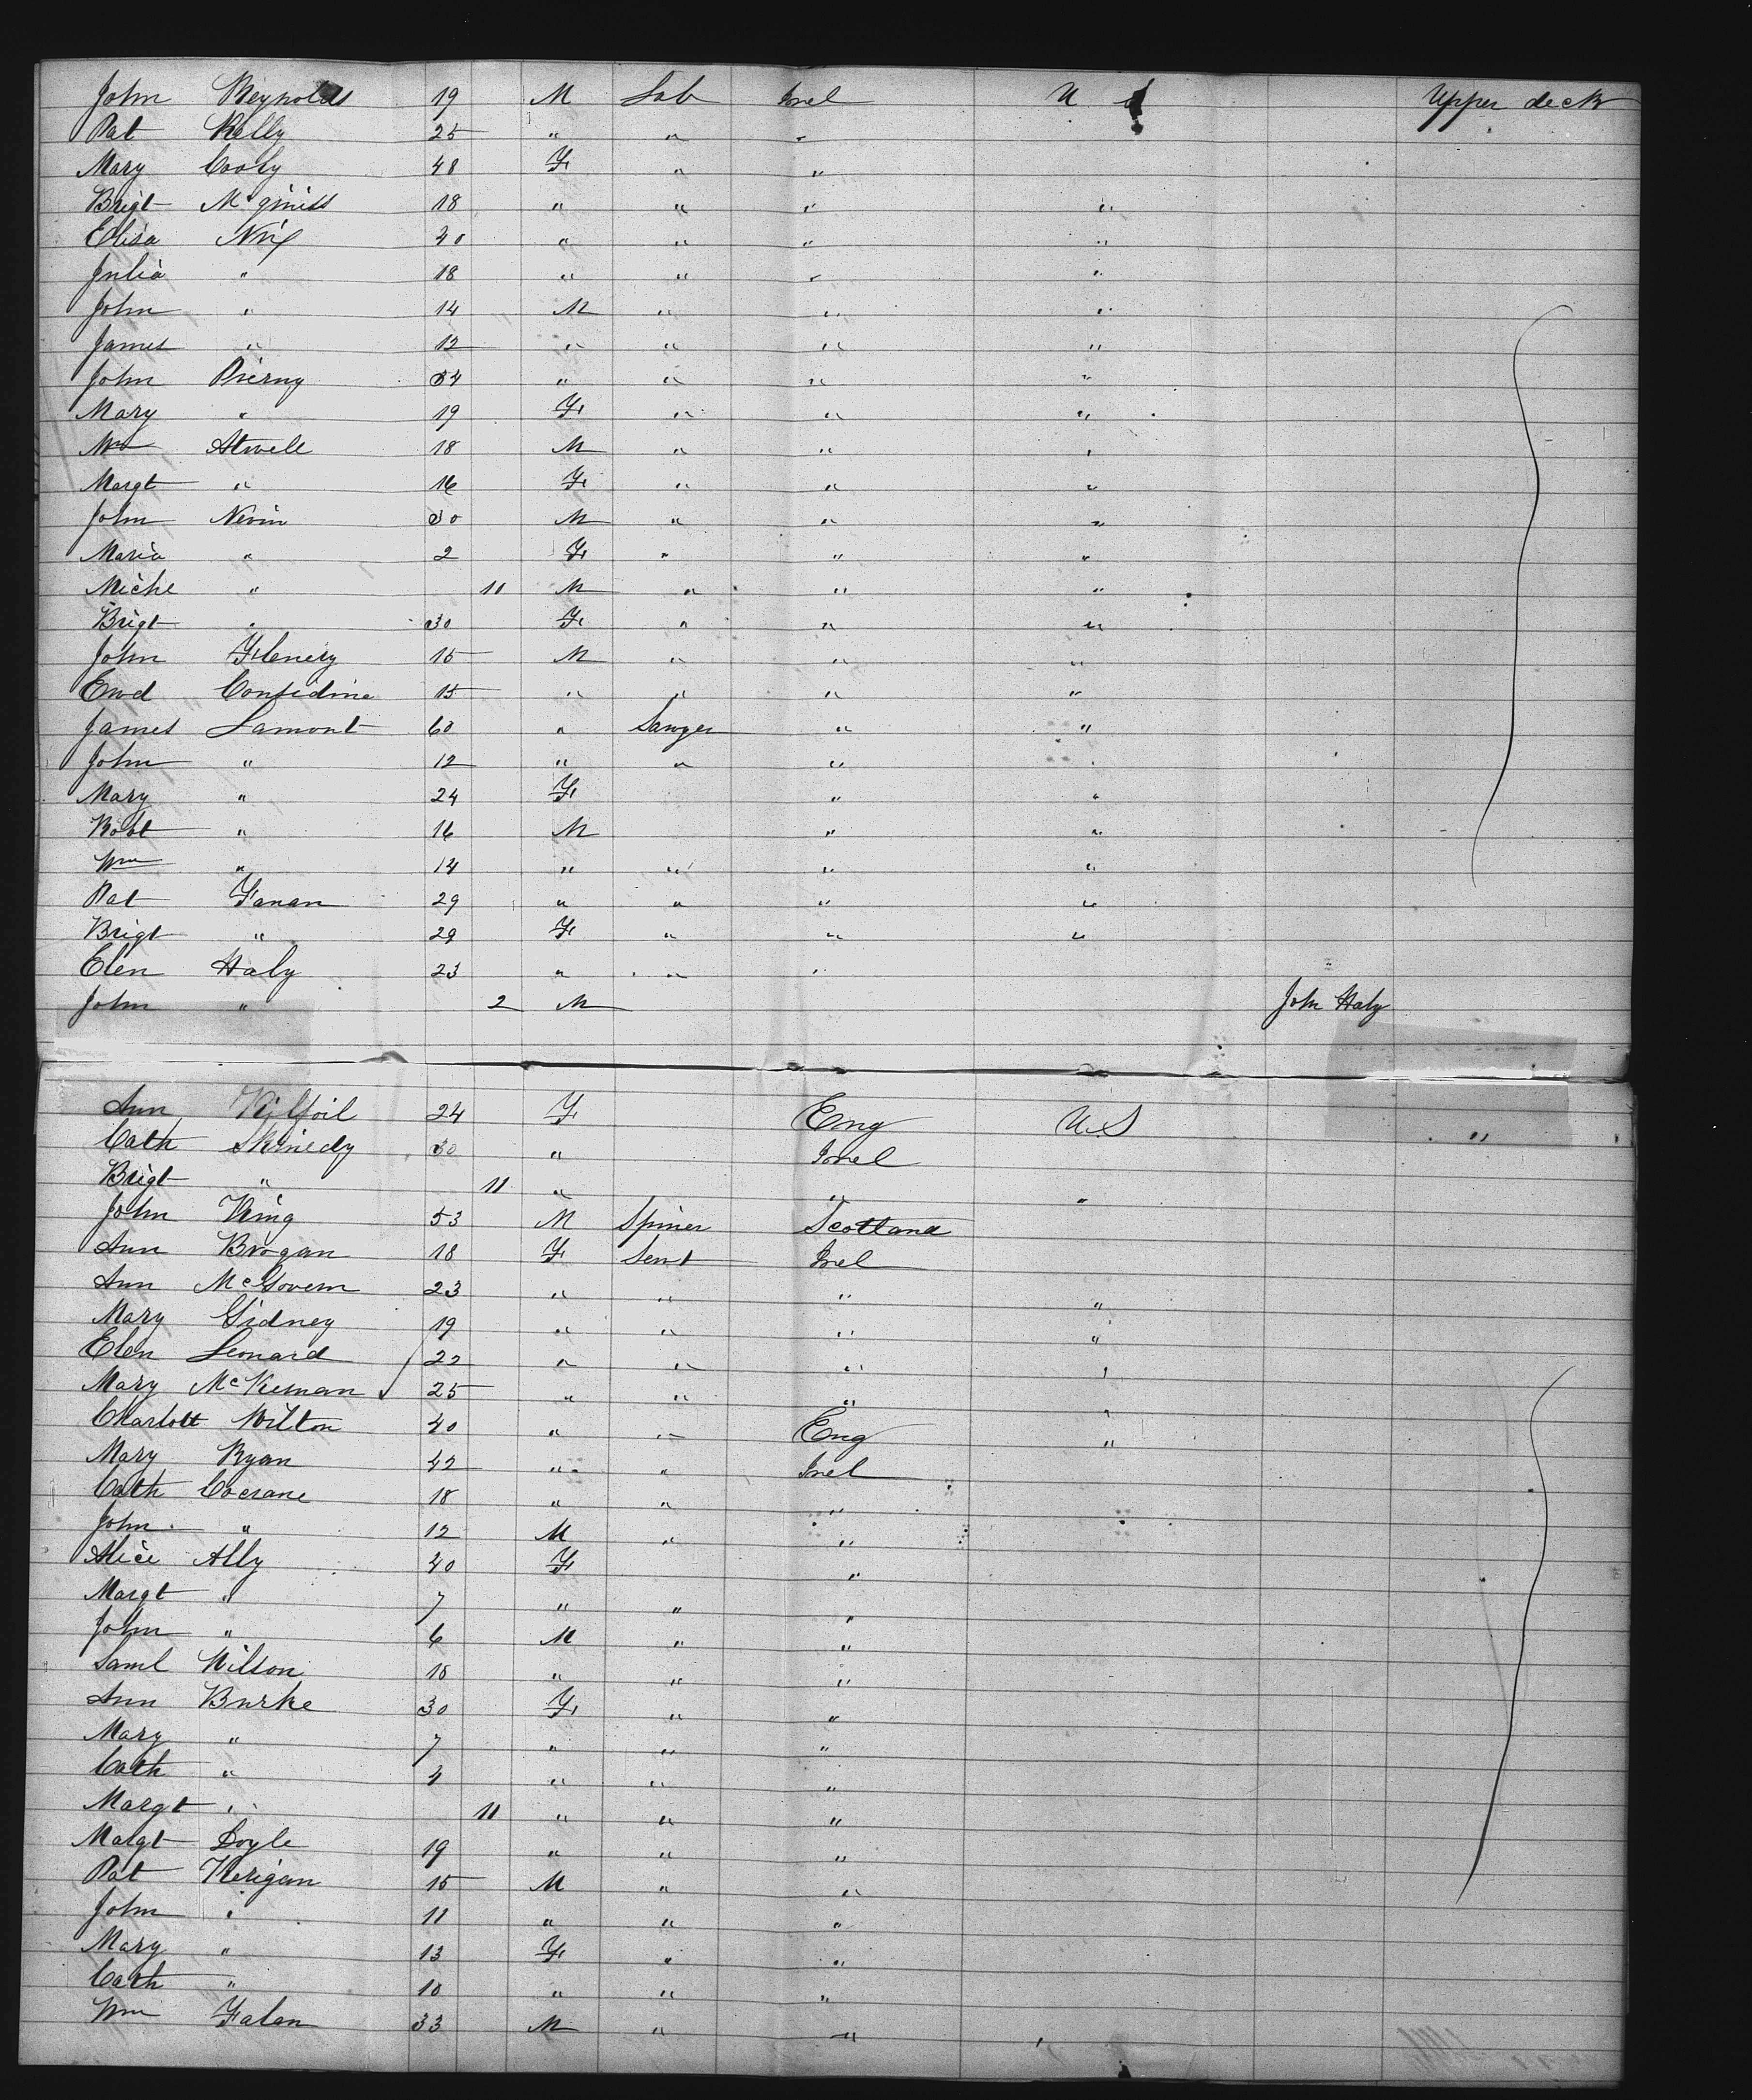 John Reynolds 19 M Lab Irel U S Upper deck
Pat Kelly 25 " " "
Mary Cooly 48 F " "
Brigt McGiniss 18 " " " "
Elisa Nix 40 " " " "
Julia " 18 " " " "
John " 14 M " " "
James " 12 " " " "
John Pierny 34 " " " "
Mary " 19 F " " "
Wm Atwell 18 M " " "
Margt " 16 F " " "
John Nevin 30 M " " "
Maria " 2 F " " "
Miche " 11 M " " "
Brigt " 30 F " " "
John Flenery 15 M " " "
Ewd Considine 15 " " " "
James Lamont 60 " Sawyer " "
John " 12 " " " "
Mary " 24 F " "
Robt " 16 M " "
Wm " 14 " " " "
Pat Fanan 29 " " " "
Brigt " 29 F " " "
Elen Haly 23 " " "
John " 2 M John Haly
Ann Kilfoil 24 F Eng U.S "
Cath Skinedy 30 " Irel
Brigt " 11 " " "
John King 53 M Spiner Scotland
Ann Brogan 18 F Sevt Irel
Ann McGovern 23 " " " "
Mary Gidney 19 " " " "
Elen Leonard 22 " " " "
Mary McKiernan 25 " " " "
Charlott Wilton 40 " " Eng "
Mary Ryan 42 " " Irel
Cath Cocrane 18 " " "
John " 12 M " "
Alice Ally 40 F "
Margt " 7 " " "
John " 6 M " "
Saml Wilson 18 " " "
Ann Burke 30 F " "
Mary " 7 " " "
Cath " 4 " " "
Margt " 11 " " "
Margt Doyle 19 " " "
Pat Kerigan 15 M " "
John " 11 " " "
Mary " 13 F " "
Cath " 10 " " "
Wm Falan 33 M " "